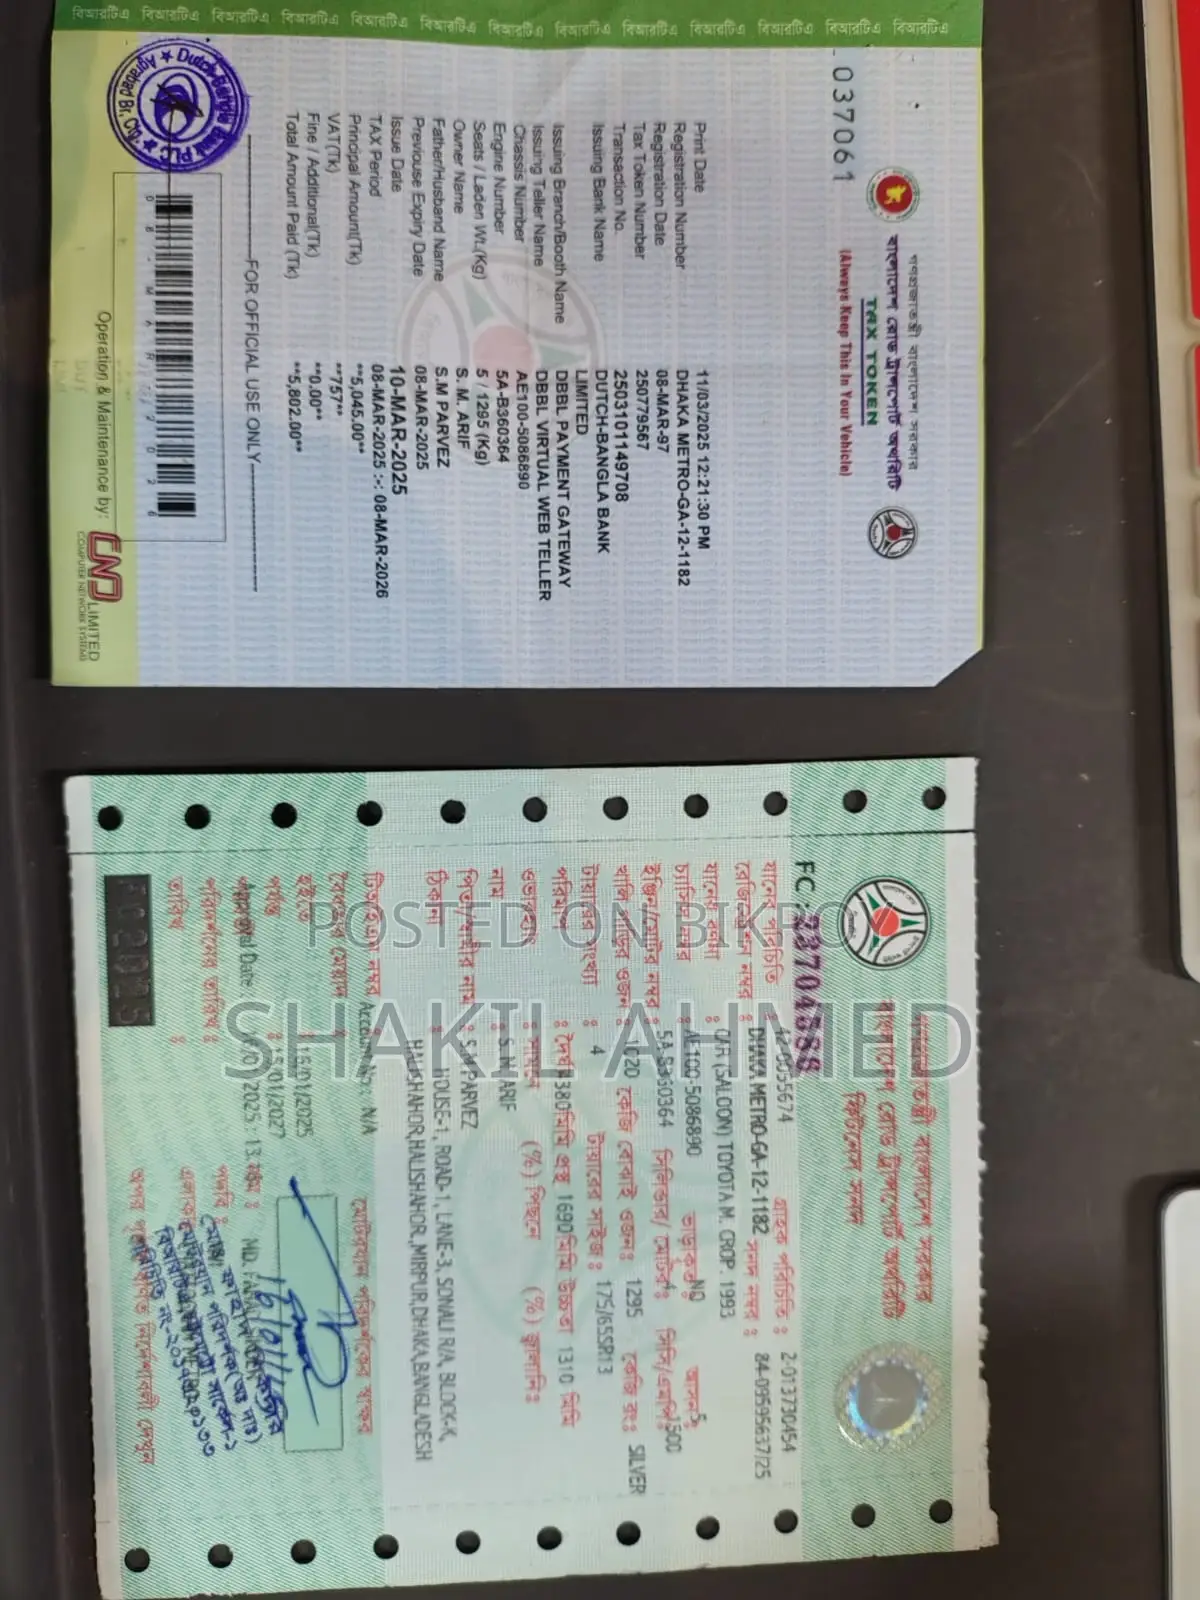 বিআরটিএ বিআরটিএ বিআরটিএ বিআরটিএ বিআরটিএ বিআরটিএ বিআরটিএ বিআরটিএ বিআরটিএ বিআরটিএ বিআরটিএ বিআরটিএ বিআরটিএ
037061
গণপ্রজাতন্ত্রী বাংলাদেশ সরকার
বাংলাদেশ রোড ট্রান্সপোর্ট অথরিটি
TAX TOKEN
(Always Keep This In Your Vehicle)
Print Date 11/03/2025 12:21:30 PM
Registration Number DHAKA METRO-GA-12-1182
Registration Date 08-MAR-97
Tax Token Number 250779567
Transaction No. 2503101149708
Issuing Bank Name DUTCH-BANGLA BANK LIMITED
Issuing Branch/Booth Name DBBL PAYMENT GATEWAY
Issuing Teller Name DBBL VIRTUAL WEB TELLER
Chassis Number AE100-5086890
Engine Number 5A-B360364
Seats / Laden Wt.(Kg) 5 / 1295 (Kg)
Owner Name S. M. ARIF
Father/Husband Name S.M PARVEZ
Previouse Expiry Date 08-MAR-2025
Issue Date 10-MAR-2025
TAX Period 08-MAR-2025 :-: 08-MAR-2026
Principal Amount(Tk) **5,045.00**
VAT(Tk) **757**
Fine / Additional(Tk) **0.00**
Total Amount Paid (Tk) **5,802.00**
FOR OFFICIAL USE ONLY
Dutch-Bangla Bank PLC
Agrabad Br. Ctg.
08MAR2026
Operation & Maintenance by: CNS LIMITED
COMPUTER NETWORK SYSTEMS
গণপ্রজাতন্ত্রী বাংলাদেশ সরকার
বাংলাদেশ রোড ট্রান্সপোর্ট অথরিটি
ফিটনেস সনদ
FC:
যানের পরিচিতি : গ্রাহক পরিচিতি : 2-013730454
রেজিস্ট্রেশন নম্বর : DHAKA METRO-GA-12-1182 সনদ নম্বর : 84-09595637/25
যানের বর্ণনা : CAR (SALOON) TOYOTA M. CROP. 1993
চ্যাসিস নম্বর : AE100-5086890 ভাড়াকৃত NO আসন: 5
ইঞ্জিন/মোটর নম্বর : 5A-B360364 সিলিন্ডার/ মোটর: 4 সিসি/ 1500
খালি গাড়ির ওজন: 1020 কেজি বোঝাই ওজন: 1295 কেজি রং: SILVER
টায়ারের সংখ্যা : 4 টায়ারের সাইজ : 175/65SR13
পরিমাপ : দৈর্ঘ্য 4380 মিমি প্রস্থ 1690 মিমি উচ্চতা 1310 মিমি
ওভারহ্যাং : সামনে (%) পিছনে (%)
নাম : S. M. ARIF
পিতা/স্বামীর নাম : S.M PARVEZ
ঠিকানা : HOUSE-1, ROAD-1, LANE-3, SONALI R/A, BLOCK-K,
HALISHAHOR,HALISHAHOR,MIRPUR,DHAKA,BANGLADESH
টিআইএন নম্বর Account No: N/A মোটরযান পরিদর্শকের স্বাক্ষর
বৈধতার মেয়াদ :
হইতে : 16/01/2025
পর্যন্ত : 15/01/2027
Approval Date
পরিদর্শনের তারিখ :
তারিখ :
POSTED ON BIKROY
SHAKIL AHMED